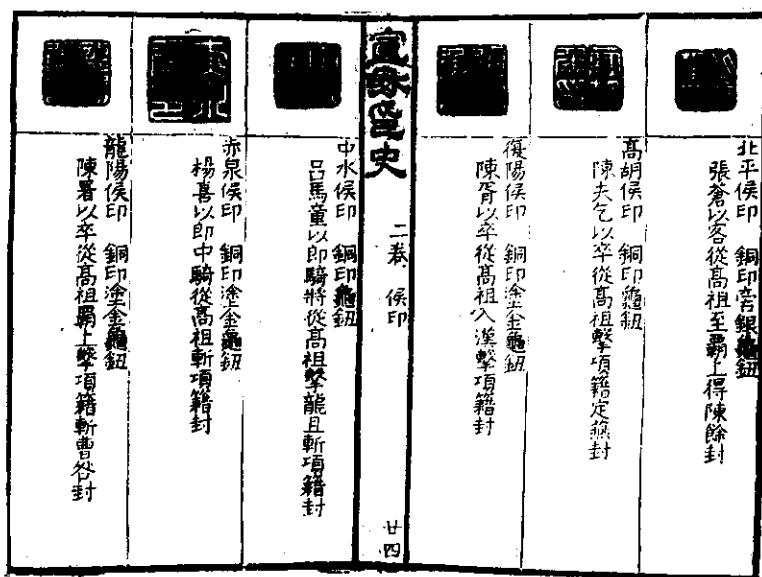 北平侯印　銅印旁銀龜鈕
張蒼以客從高祖至霸上得陳餘封
高胡侯印　銅印龜鈕
陳夫乞以卒從高祖擊項籍定燕封
復陽侯印　銅印塗金龜鈕
陳胥以卒從高祖入漢擊項籍封
宣和印史
二卷　侯印
廿四
中水侯印　銅印龜鈕
呂馬童以郎騎將從高祖擊龍且斬項籍封
赤泉侯印　銅印塗金龜鈕
楊喜以郎中騎從高祖斬項籍封
龍陽侯印　銅印塗金龜鈕
陳署以卒從高祖霸上擊項籍斬曹咎封